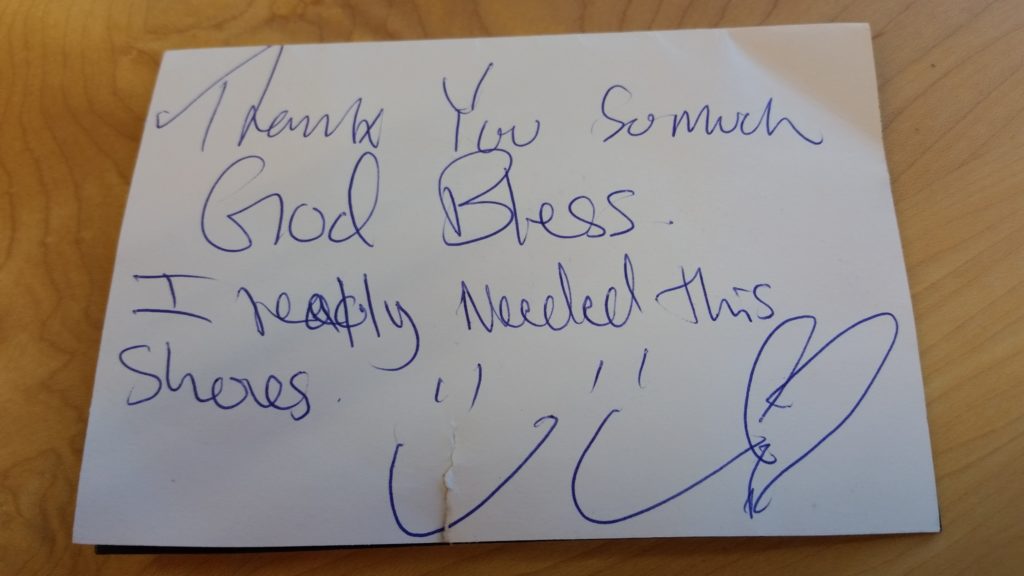 Thank You So much
God Bless.
I really Needed this
Shoes.